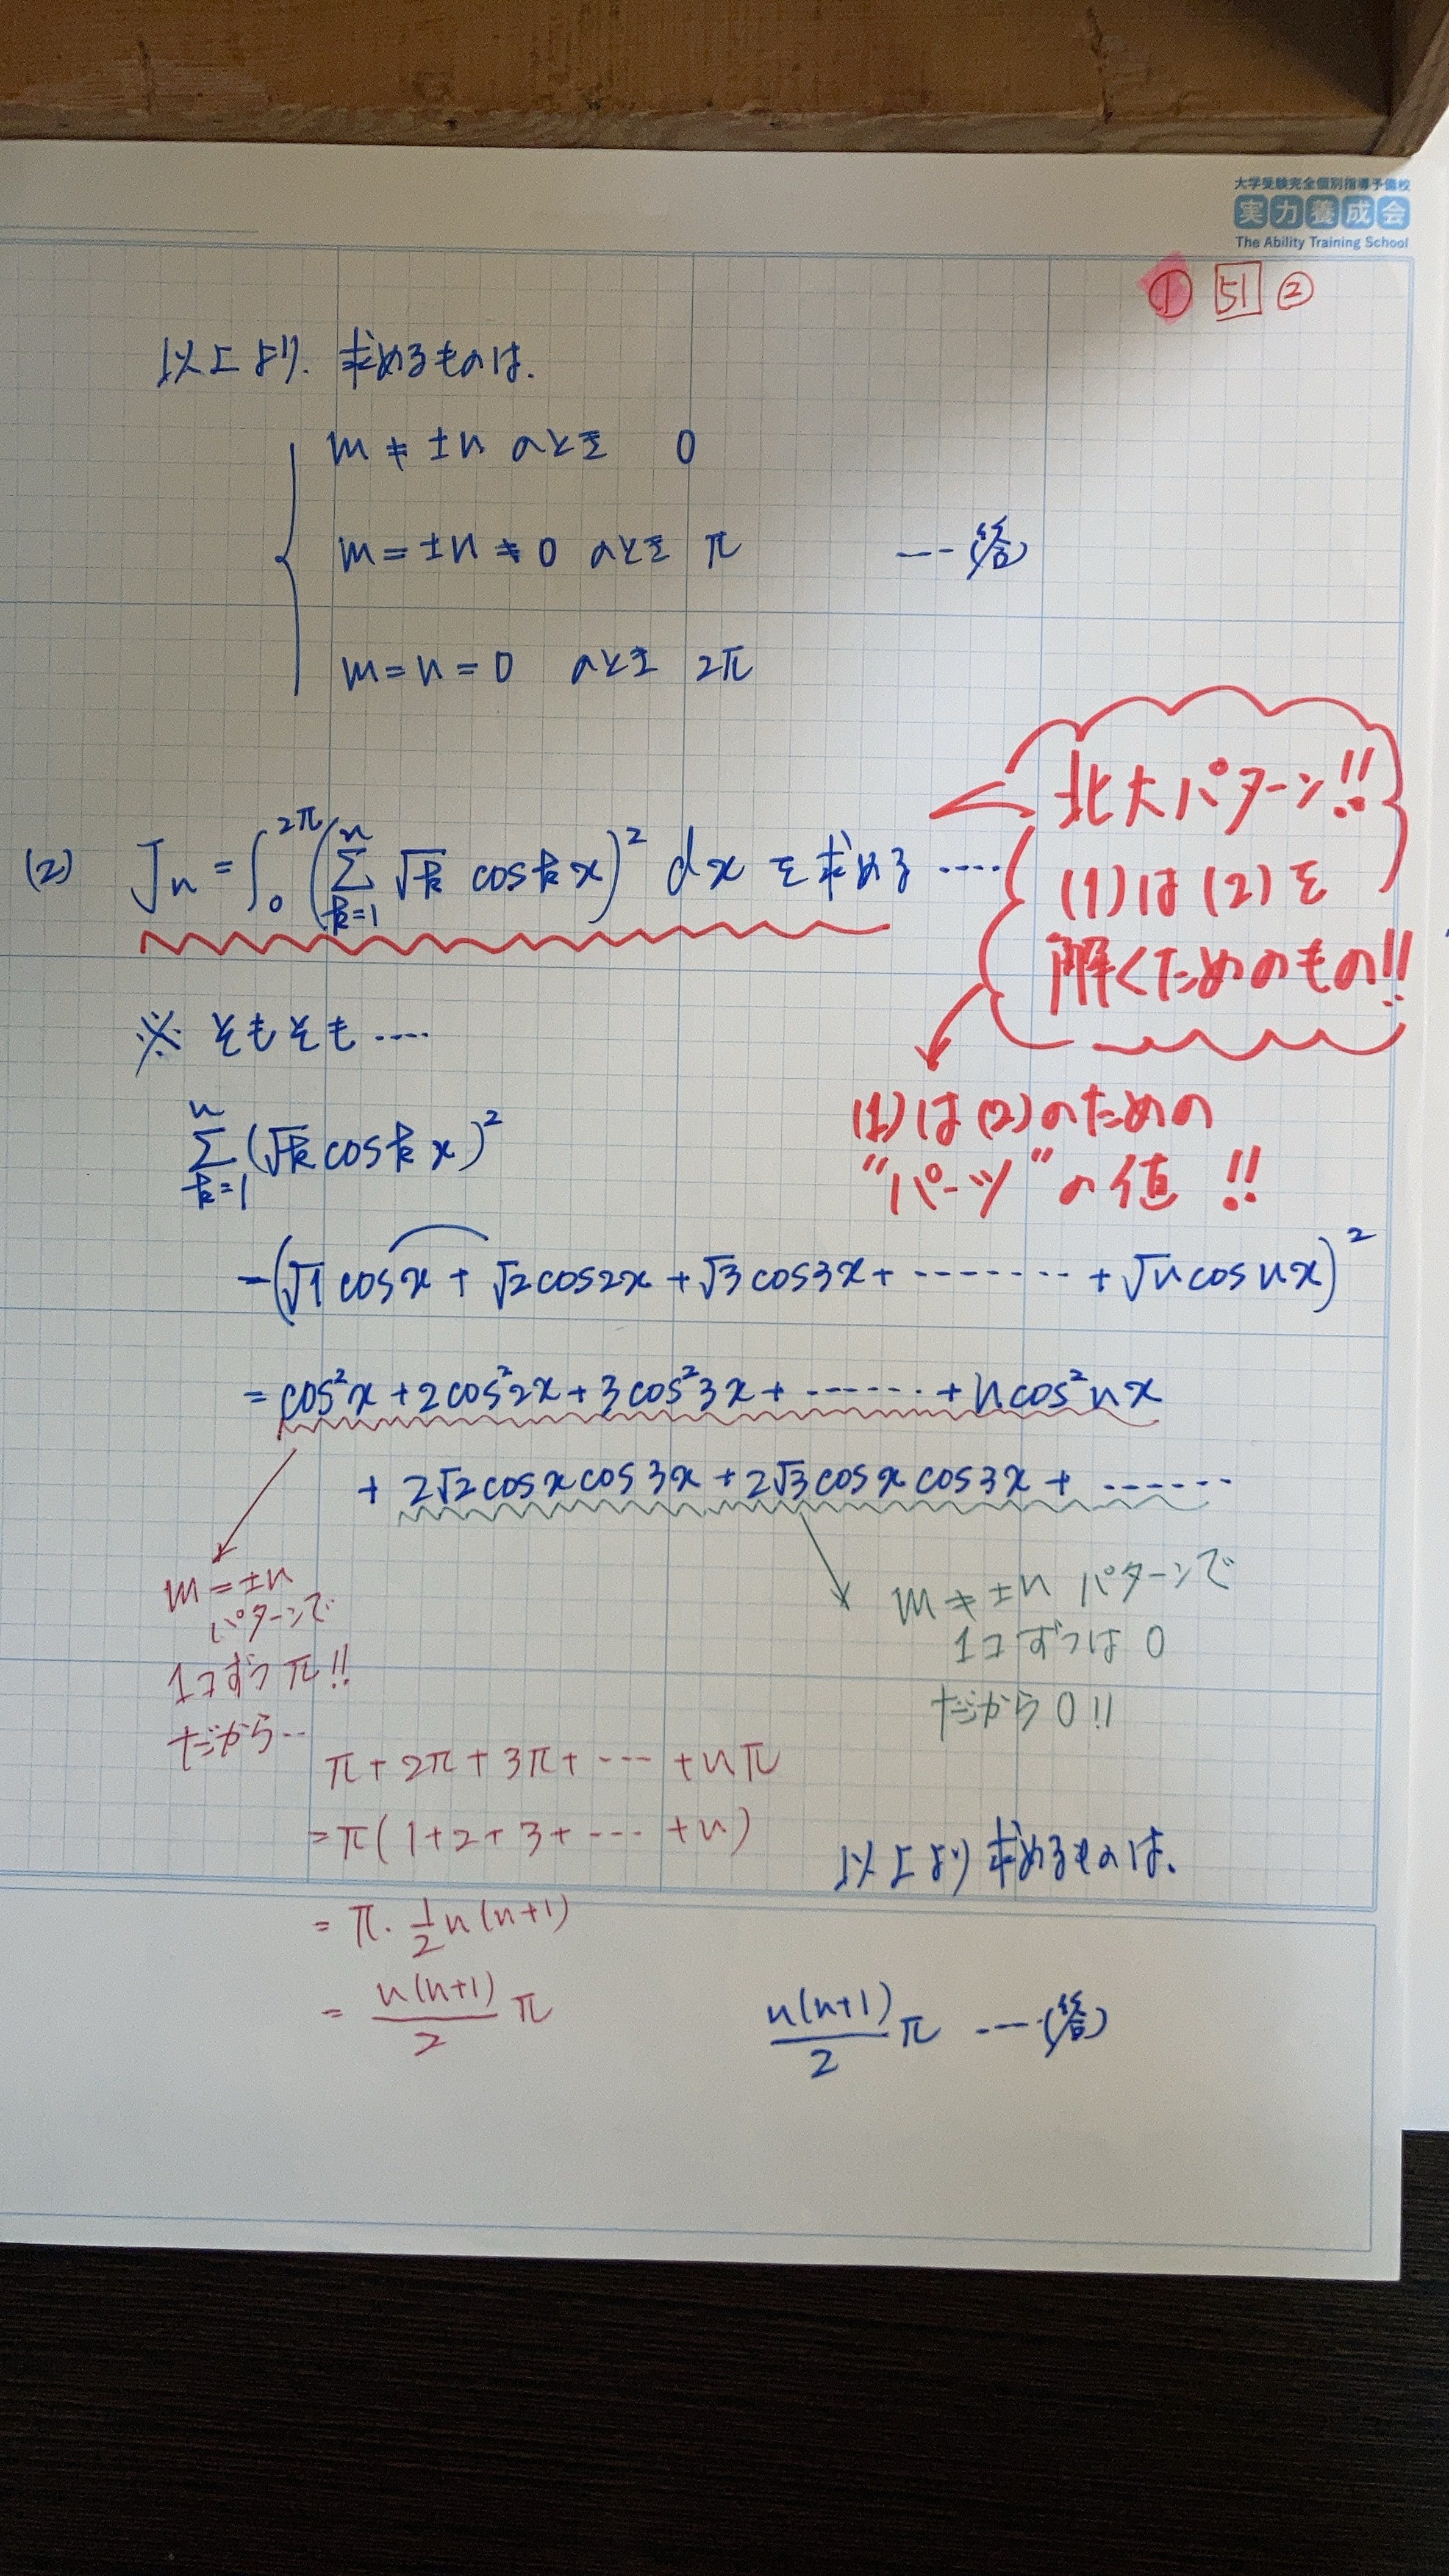 大学受験完全個別指導予備校
実力養成会
The Ability Training School
① 51 ②
以上より、求めるものは、
m ≠ ±n のとき 0
m = ±n ≠ 0 のとき π ---(答)
m = n = 0 のとき 2π
(2) Jn = ∫₀^{2π} (Σ_{k=1}^{n} √k cos kx)² dx を求める ....
北大パターン!!
(1)は(2)を
解くためのもの!!
(1)は(2)のための
"パーツ"の値 !!
※ そもそも ....
Σ_{k=1}^{n} (√k cos kx)²
=(√1 cos x + √2 cos2x + √3 cos3x + -------- + √n cos nx)²
= cos²x + 2cos²2x + 3cos²3x + ------- + n cos²nx
+ 2√2 cosx cos3x + 2√3 cosx cos3x + -------
m = ±n
パターンで
1コずつ π!!
だから...
m ≠ ±n パターンで
1コずつは 0
だから 0!!
π + 2π + 3π + --- + nπ
= π(1+2+3+ --- +n)
= π・1/2 n(n+1)
= n(n+1)/2 π
以上より求めるものは、
n(n+1)/2 π ---(答)